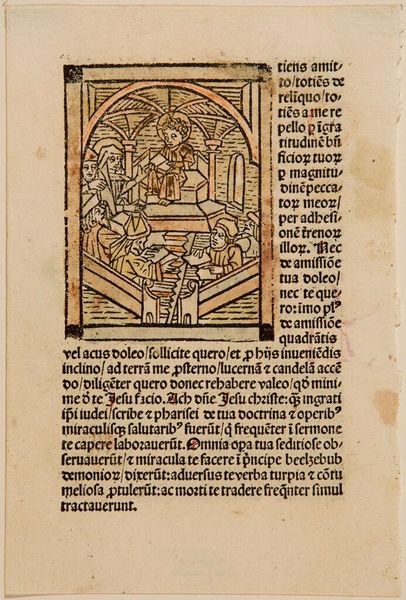 tiens amit-
to/totiēs de
relīquo/to-
tiēs a me re
pello ꝑ īgra
titudinē bn̄
ficioꝝ tuoꝝ
ꝑ magnitu-
dinē pecca-
toꝝ meoꝝ/
per adhesi-
onē t̄renoꝝ
illoꝝ. Nec
de amissiōe
tua doleo/
nec te que-
ro: īmo plꝰ
de amissiōe
quadrātis
vel acus doleo/sollicite quero/et ꝓ hijs inueniēdis
inclino/ad terrā me ꝓsterno/lucernā ⁊ candelā accē
do/diligēter quero donec rehabere valeo/qd̄ mini-
me ō te Jesu facio. Ach dn̄e Jesu christe: qꝫ ingrati
ip̄i iudei/scribe ⁊ pharisei de tua doctrina ⁊ operibꝰ
miraculisqꝫ salutaribꝰ fuerūt/ꝙ freque̅ter ī sermone
te capere laborauerūt. Omnia oꝑa tua seditiose ob-
seruauerūt/⁊ miracula te facere ī p̄ncipe beelzebub
demonioꝝ/dixerūt: aduersus te verba turpia ⁊ cōtu
meliosa ꝓtulerūt: ac morti te tradere freq̄nter simul
tractauerunt.